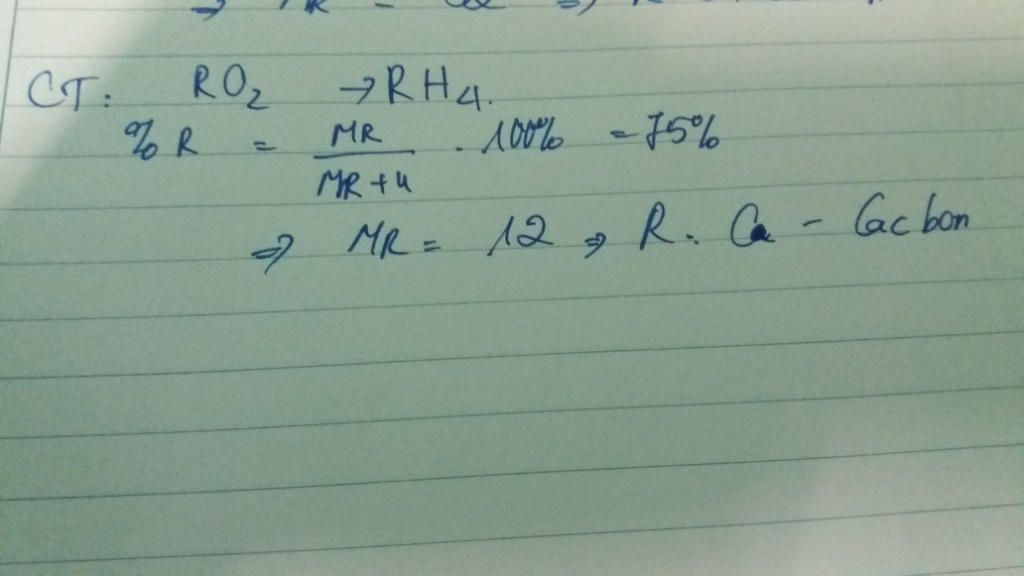 CT: RO2 → RH4.
%R = MR / MR+4 . 100% = 75%
⇒ MR = 12 ⇒ R. Ca - Cacbon